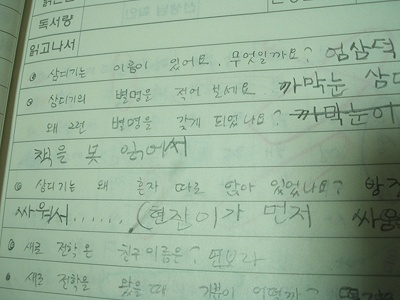 독서량
읽고나서
삼디기는 이름이 있어요. 무엇일까요? 엄삼덕
삼디기의 별명을 적어 보세요. 까막눈 삼디
왜 그런 별명을 갖게 되었나요? 까막눈이
책을 못 읽어서
삼디기는 왜 혼자 따로 앉아 있었나요?
싸워서...... (현진이가 먼저 싸움
새로 전학 온 친구 이름은? 연보라
새로 전학을 왔을 때 기분이 어떨까?